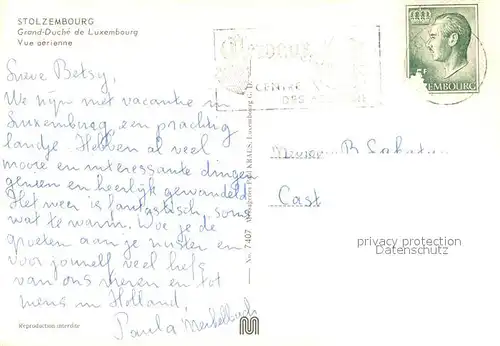 STOLZEMBOURG
Grand-Duché de Luxembourg
Vue aérienne
Lieve Betsy,
We zijn met vacantie in
Luxemburg, een prachtig
landje. Hebben al veel
mooie en interessante dingen
gezien en heerlijk gewandeld
Het weer is fantastisch, soms
wat te warm. Doe je de
groeten aan je zuster en
voor jouzelf veel liefs
van ons en tot
in Holland,
Paula
Reproduction interdite
No. 7407 Messageries Paul KRAUS, Luxembourg
CENTRE
DES
Cast
privacy protection
Datenschutz